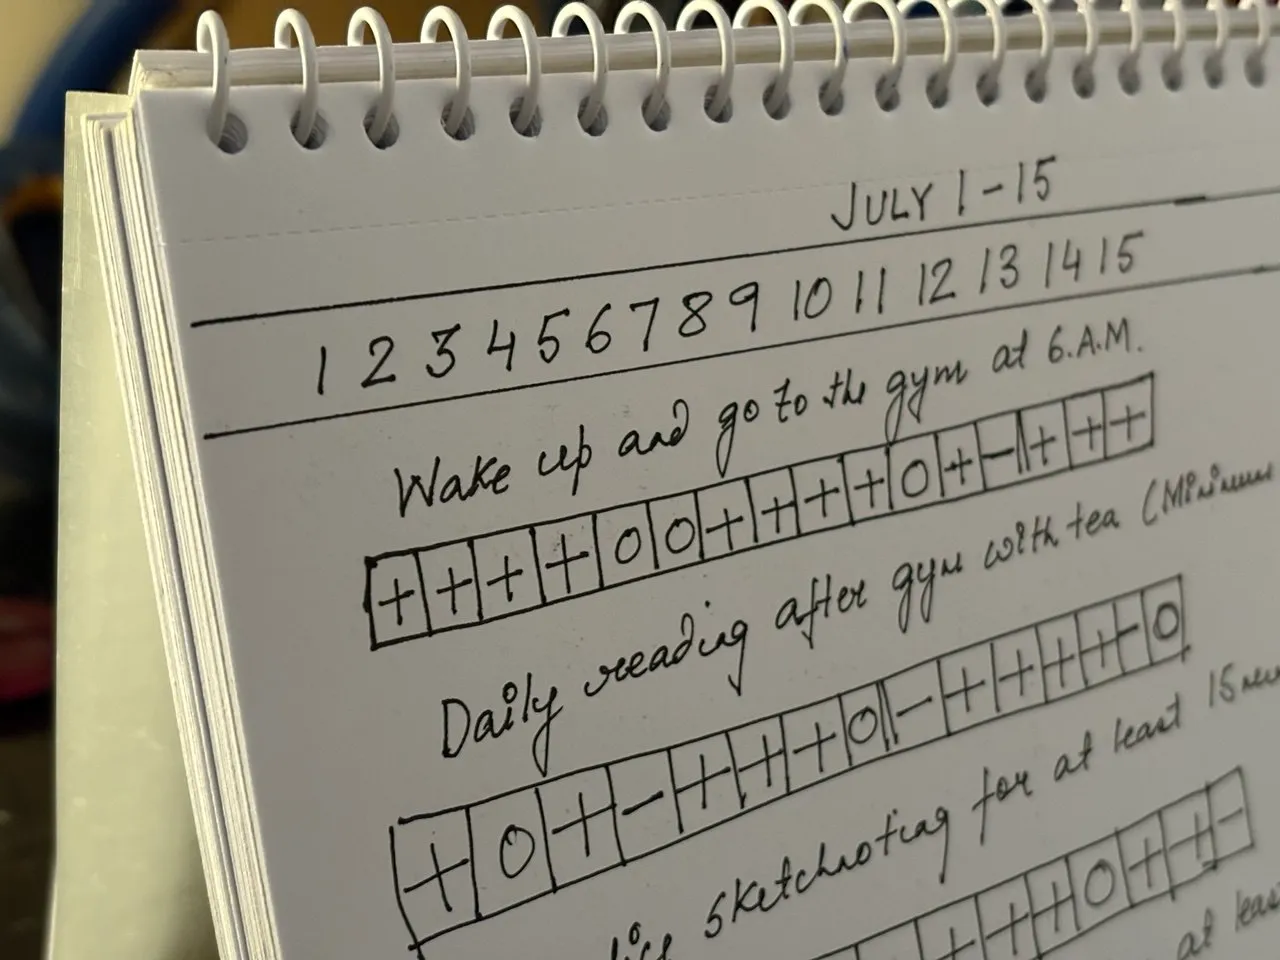 JULY 1-15
1 2 3 4 5 6 7 8 9 10 11 12 13 14 15
Wake up and go to the gym at 6.A.M.
+ + + + O O + + + + O + - + + +
Daily reading after gym with tea (Minimum
+ O + - + + + O - + + + + - O
sketchnoting for at least 15
+ + + O + + -
at least